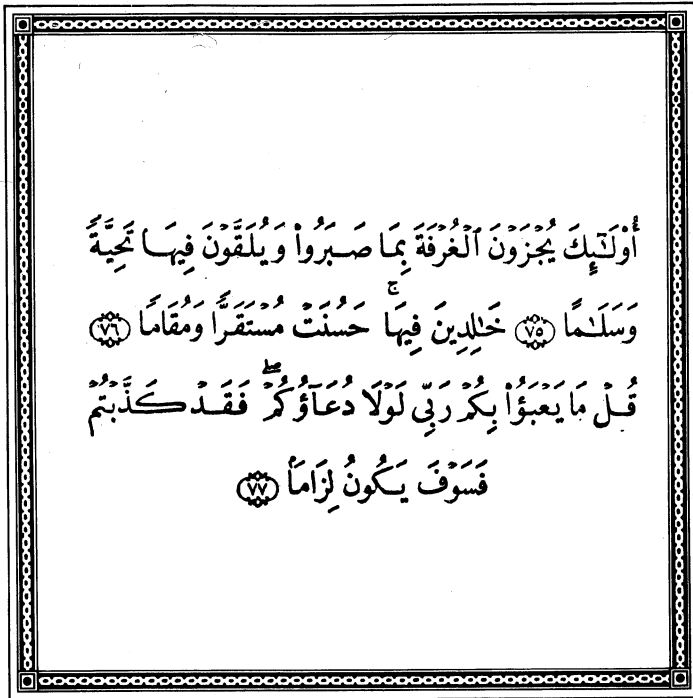 أُوْلَـٰٓئِكَ يُجْزَوْنَ ٱلْغُرْفَةَ بِمَا صَبَرُواْ وَيُلَقَّوْنَ فِيهَا تَحِيَّةً
وَسَلَـٰمًا ﴿٧٥﴾ خَـٰلِدِينَ فِيهَا ۚ حَسُنَتْ مُسْتَقَرًّا وَمُقَامًا ﴿٧٦﴾
قُلْ مَا يَعْبَؤُاْ بِكُمْ رَبِّى لَوْلَا دُعَآؤُكُمْ ۖ فَقَدْ كَذَّبْتُمْ
فَسَوْفَ يَكُونُ لِزَامًۢا ﴿٧٧﴾